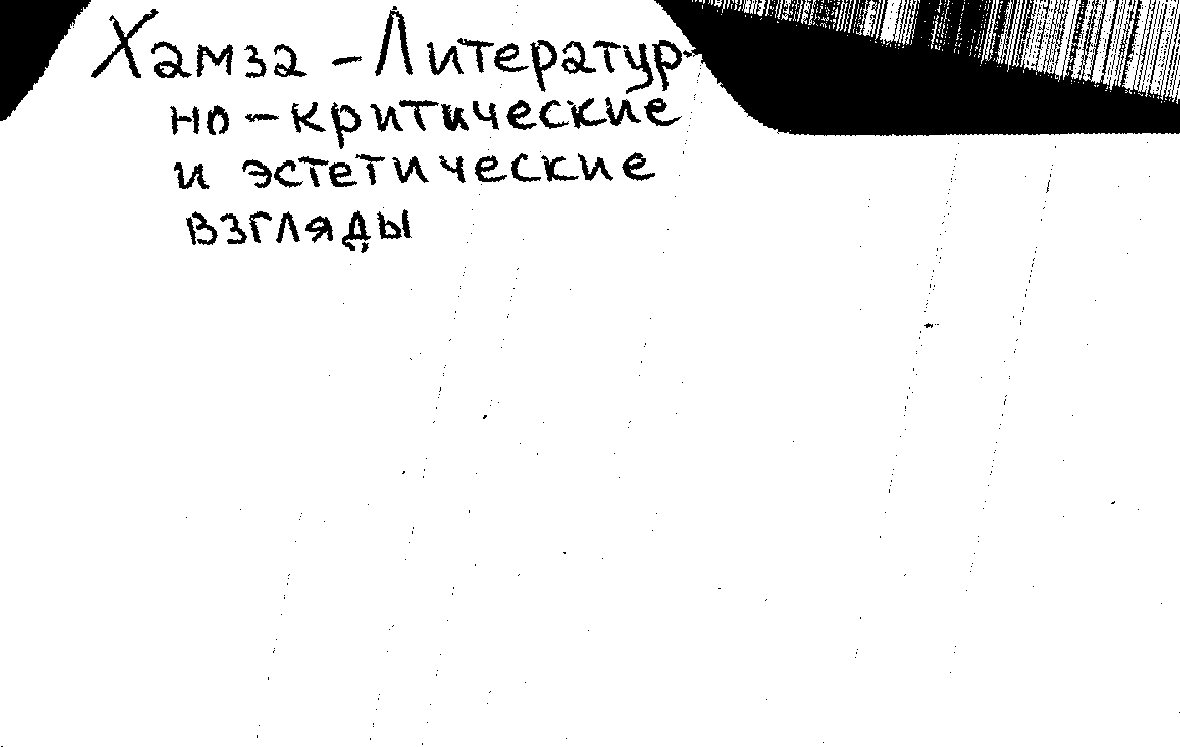 Хамза - Литератур-
но - критические
и эстетические
взгляды